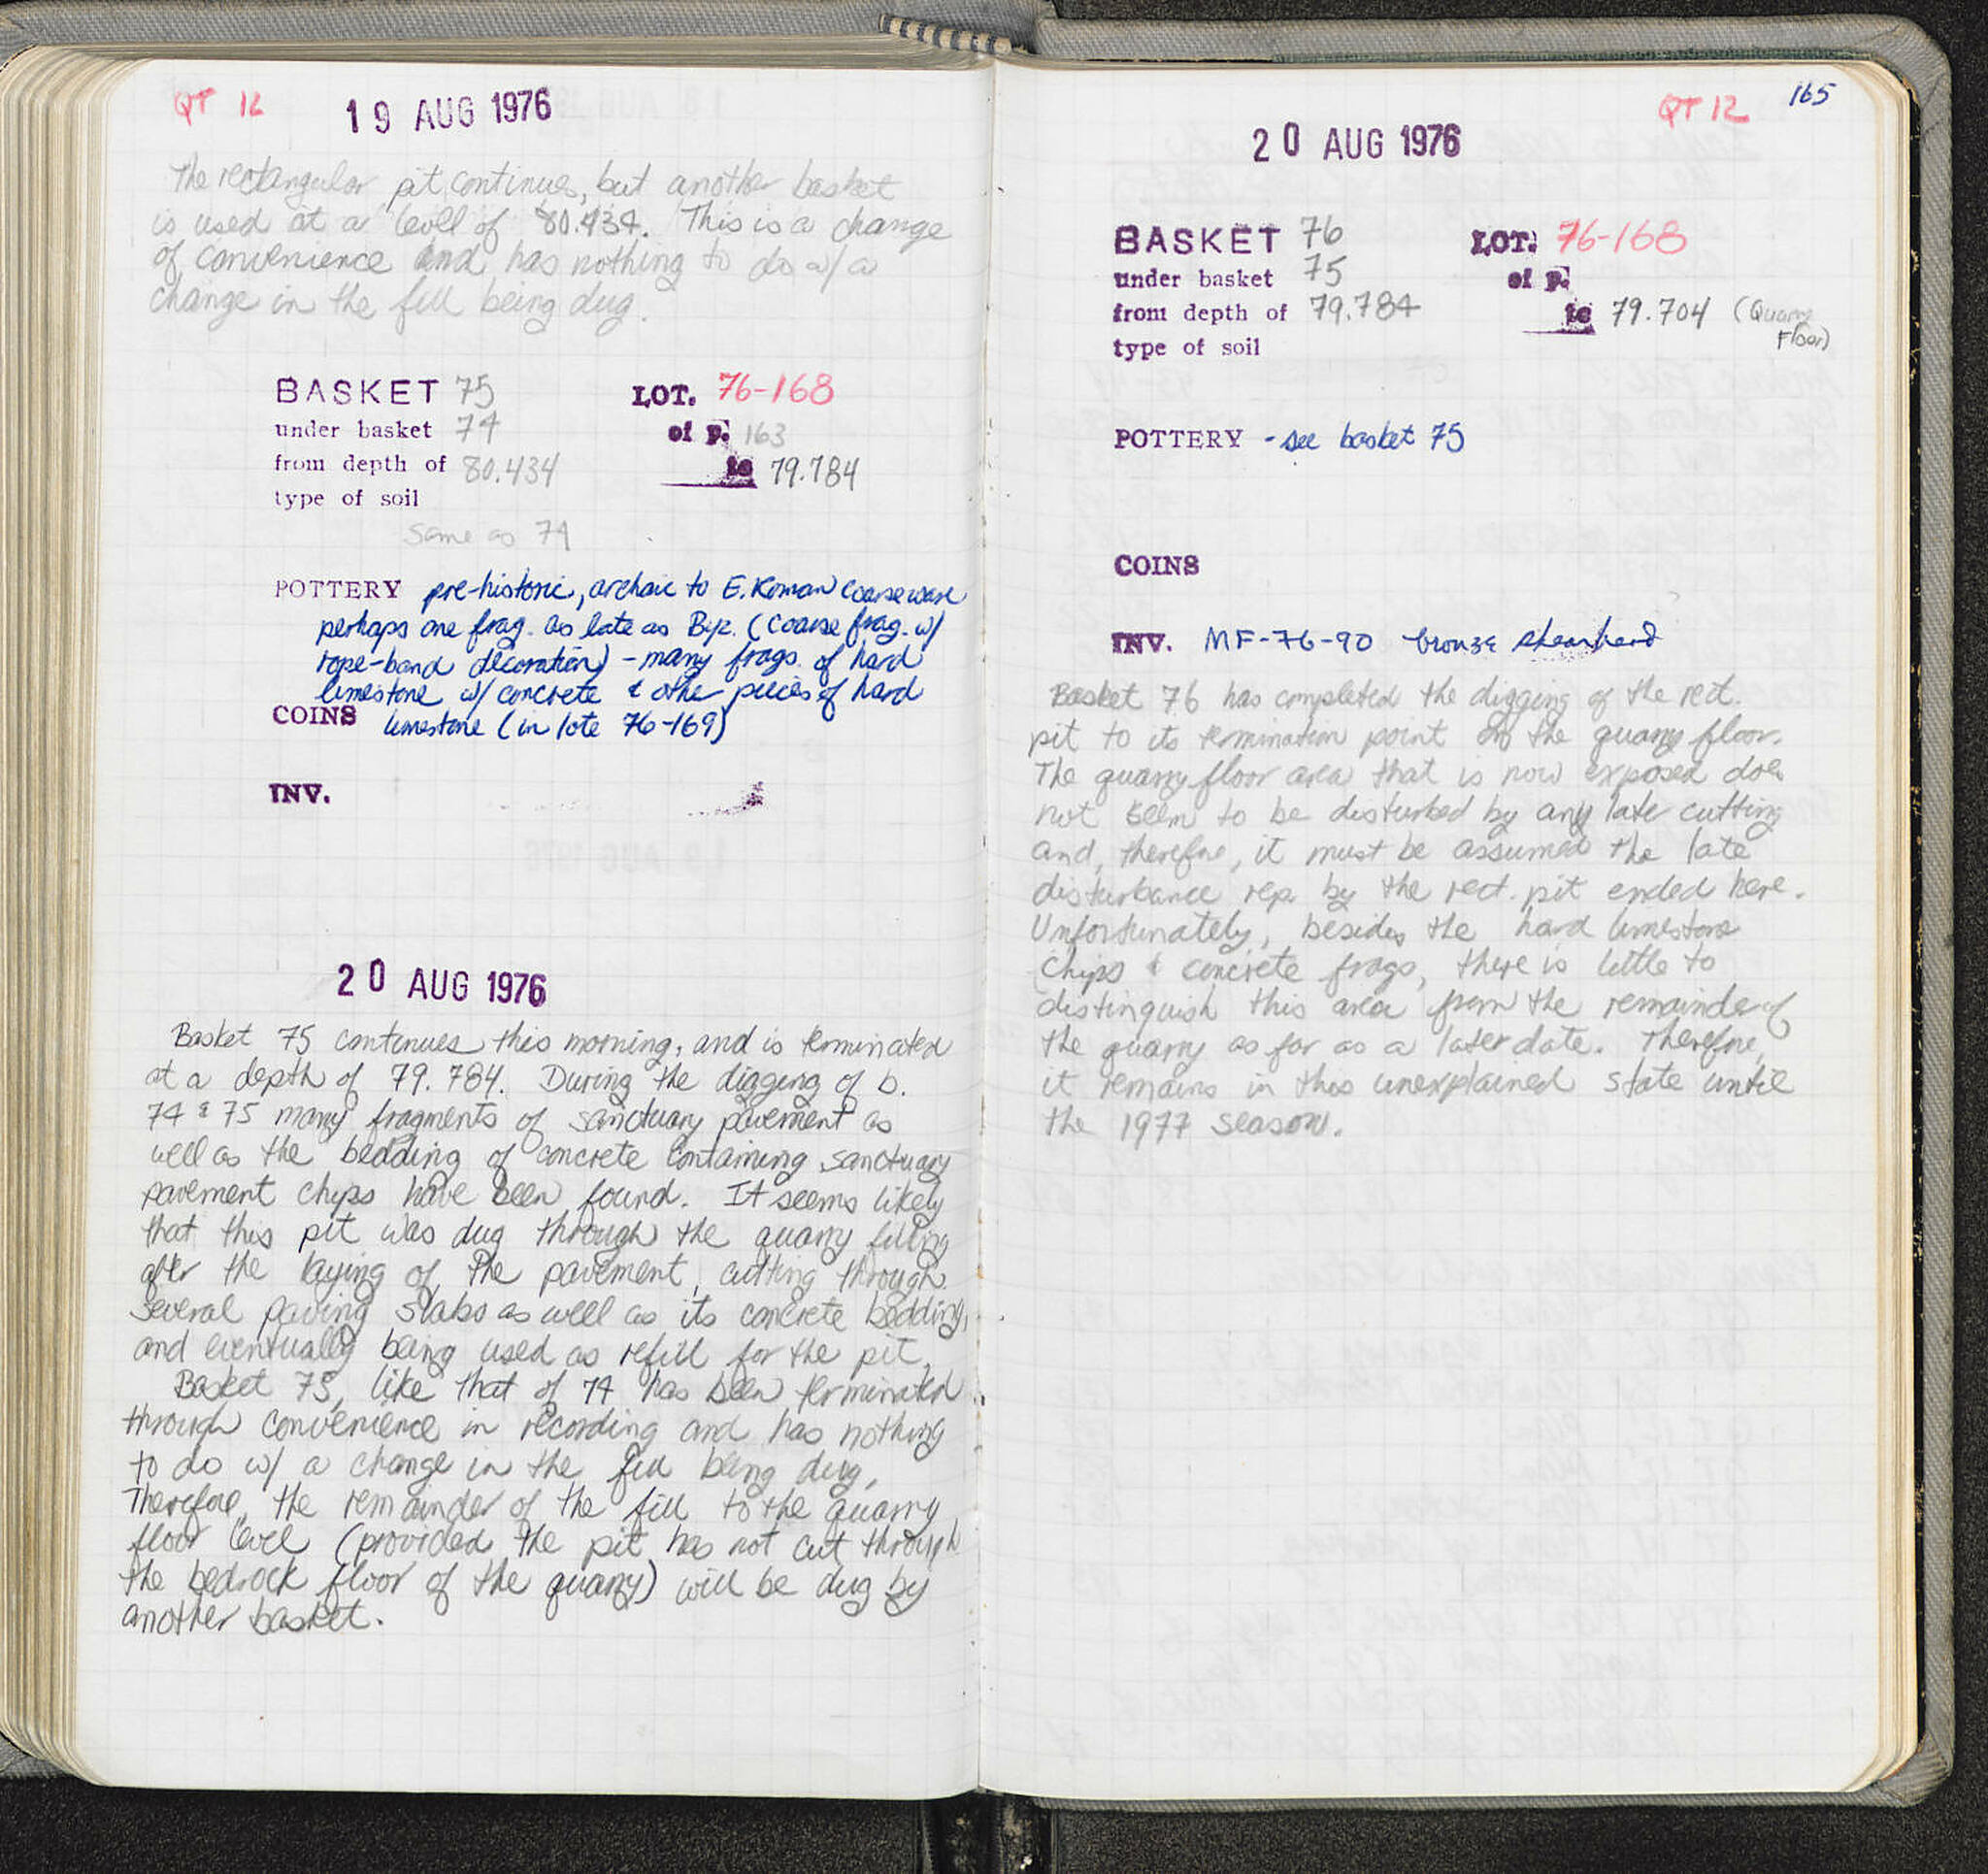 QT 12
19 AUG 1976
The rectangular pit continues, but another basket
is used at a level of 80.434. This is a change
of convenience and has nothing to do w/ a
change in the fill being dug.
BASKET 75 LOT. 76-168
under basket 74 of P. 163
from depth of 80.434 to 79.784
type of soil
same as 74
POTTERY pre-historic, archaic to E. Roman coarse ware
perhaps one frag. as late as Byz. (coarse frag. w/
rope-band decoration) - many frags. of hard
limestone w/ concrete & other pieces of hard
COINS limestone (in lote 76-169)
INV.
20 AUG 1976
Basket 75 continues this morning, and is terminated
at a depth of 79.784. During the digging of b.
74 & 75 many fragments of sanctuary pavement as
well as the bedding of concrete containing sanctuary
pavement chips have been found. It seems likely
that this pit was dug through the quarry filling
after the laying of the pavement, cutting through
several paving slabs as well as its concrete bedding,
and eventually being used as refill for the pit.
Basket 75, like that of 74 has been terminated
through convenience in recording and has nothing
to do w/ a change in the fill being dug.
Therefore, the remainder of the fill to the quarry
floor level (provided the pit has not cut through
the bedrock floor of the quarry) will be dug by
another basket.
QT 12 165
20 AUG 1976
BASKET 76 LOT. 76-168
under basket 75 of P.
from depth of 79.784 to 79.704 (Quarry
Floor)
type of soil
POTTERY - see basket 75
COINS
INV. MF-76-90 bronze
Basket 76 has completed the digging of the rect.
pit to its termination point on the quarry floor.
The quarry floor area that is now exposed does
not seem to be disturbed by any later cutting
and, therefore, it must be assumed the late
disturbance rep. by the rect. pit ended here.
Unfortunately, besides the hard limestone
chips & concrete frags, there is little to
distinguish this area from the remainder of
the quarry as far as a later date. Therefore,
it remains in this unexplained state until
the 1977 season.